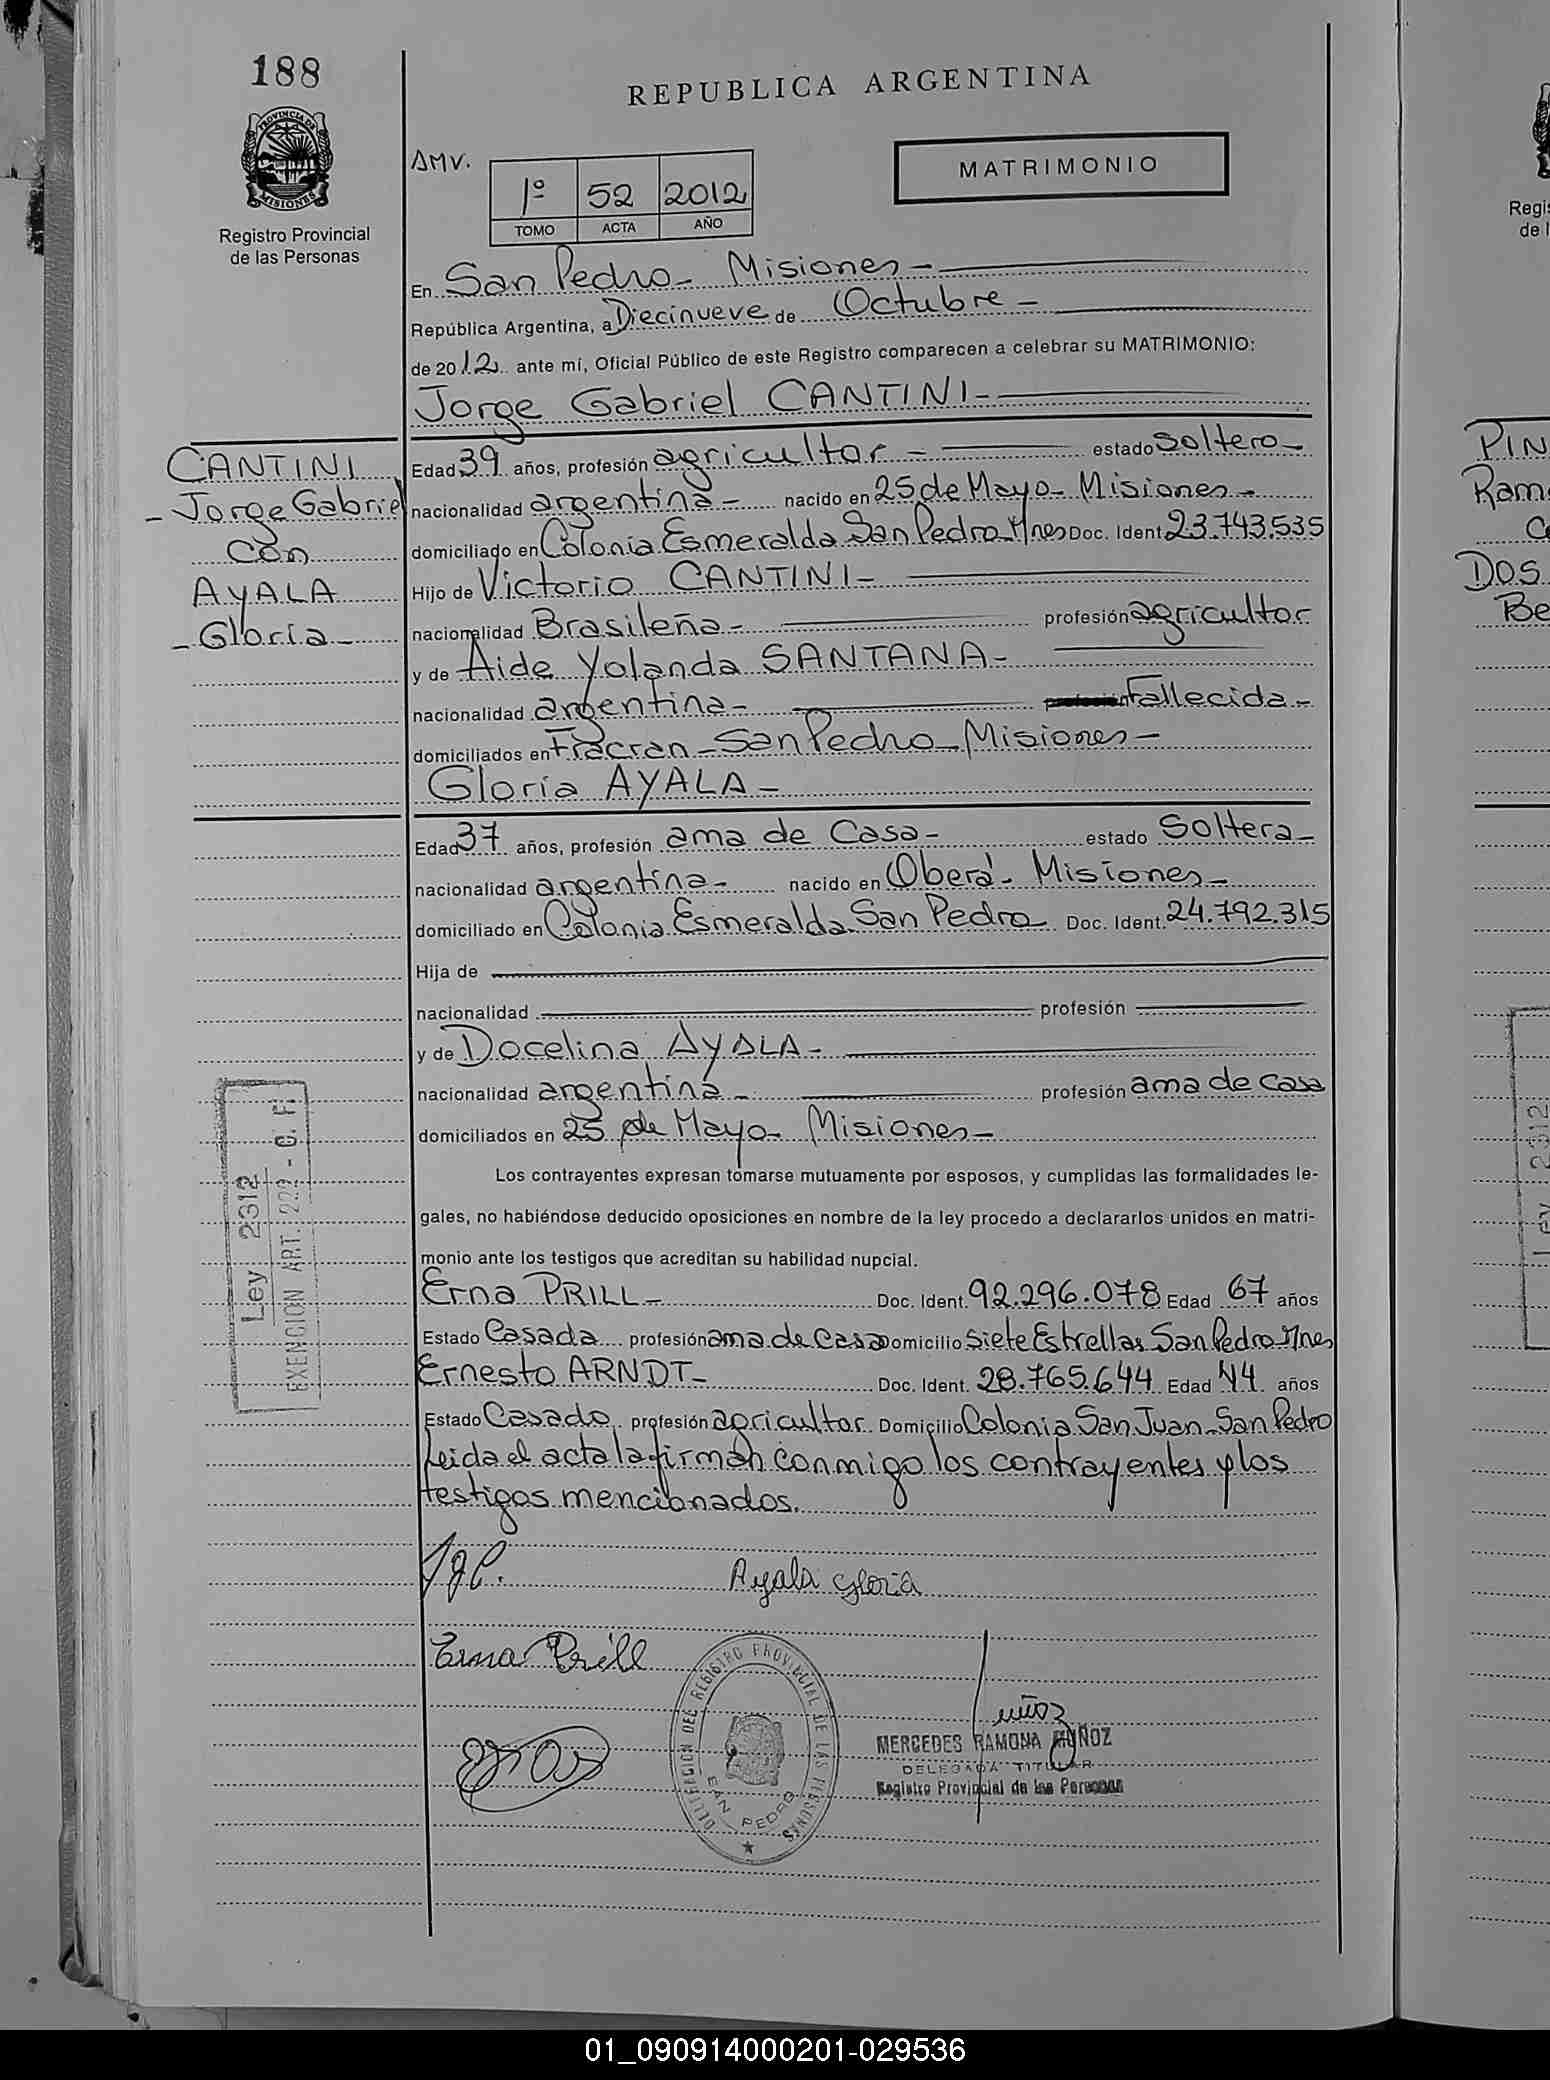 188
REPUBLICA ARGENTINA
PROVINCIA DE MISIONES
Registro Provincial
de las Personas
AMV.
1º 52 2012
TOMO ACTA AÑO
MATRIMONIO
En San Pedro - Misiones -
República Argentina, a Diecinueve de Octubre -
de 2012 ante mí, Oficial Público de este Registro comparecen a celebrar su MATRIMONIO:
Jorge Gabriel CANTINI -
CANTINI
- Jorge Gabriel
con
AYALA
- Gloria -
Edad 39 años, profesión agricultor - estado soltero -
nacionalidad argentina - nacido en 25 de Mayo - Misiones -
domiciliado en Colonia Esmeralda San Pedro - Mnes Doc. Ident. 23.743.535
Hijo de Victorio CANTINI -
nacionalidad Brasileña - profesión agricultor
y de Aide Yolanda SANTANA -
nacionalidad argentina - profesión Fallecida -
domiciliados en Fracran - San Pedro - Misiones -
Gloria AYALA -
Edad 37 años, profesión ama de Casa - estado Soltera -
nacionalidad argentina - nacido en Oberá - Misiones -
domiciliado en Colonia Esmeralda San Pedro Doc. Ident. 24.792.315
Hija de
nacionalidad profesión
y de Docelina AYALA -
nacionalidad argentina - profesión ama de casa
domiciliados en 25 de Mayo - Misiones -
Los contrayentes expresan tomarse mutuamente por esposos, y cumplidas las formalidades le-
gales, no habiéndose deducido oposiciones en nombre de la ley procedo a declararlos unidos en matri-
monio ante los testigos que acreditan su habilidad nupcial.
Erna PRILL - Doc. Ident. 92.296.078 Edad 67 años
Estado Casada profesión ama de casa Domicilio Siete Estrellas San Pedro Mnes
Ernesto ARNDT - Doc. Ident. 28.765.644 Edad 44 años
Estado Casado profesión agricultor Domicilio Colonia San Juan - San Pedro
Leida el acta la firman conmigo los contrayentes y los
testigos mencionados.
Ley 2312
EXENCION ART. 222 - C. F.
JgC. Ayala Gloria
Erna Prill
DELEGACION DEL REGISTRO PROVINCIAL DE LAS PERSONAS
SAN PEDRO
Muñoz
MERCEDES RAMONA MUÑOZ
DELEGADA TITULAR
Registro Provincial de las Personas
Regi
de l
PIN
Ram
C
DOS
Be
Ley 2312
01_090914000201-029536